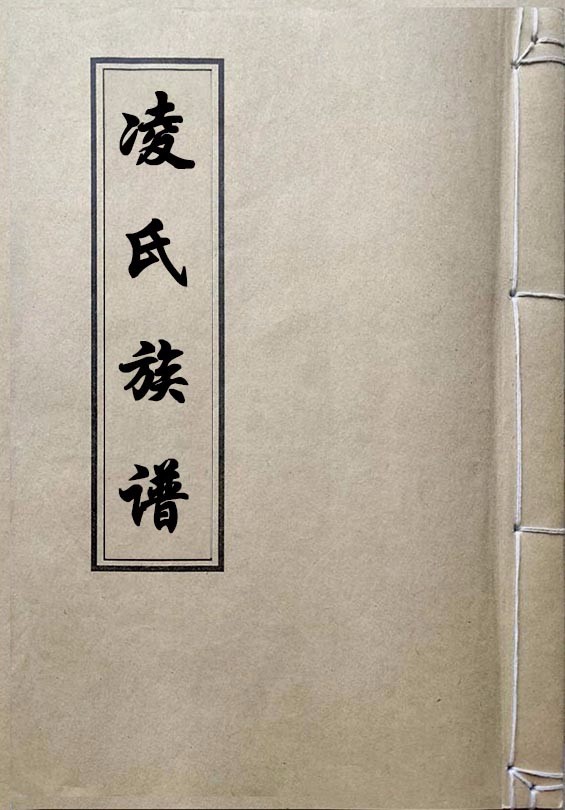 凌氏族谱